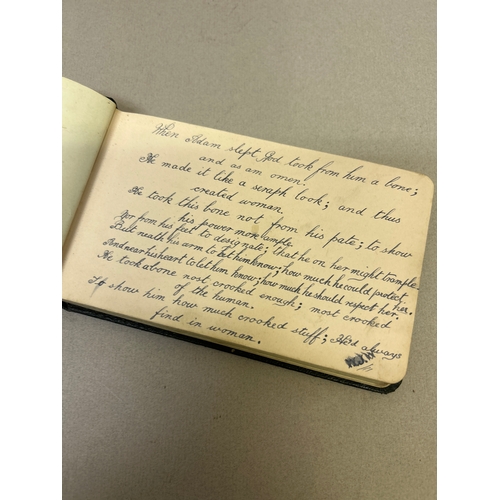 When Adam slept, God took from him a bone;
and as am omen.
He made it like a seraph look; and thus
created woman.
He took this bone not from his pate; to show
his power more ample
Nor from his feet to designate; that he on her might trample
But neath his arm to let him know; how much he could protect her.
And near his heart to let him know; how much he should respect her.
He took a bone most crooked enough; most crooked
of the human.
To show him how much crooked stuff; He'd always
find in woman.